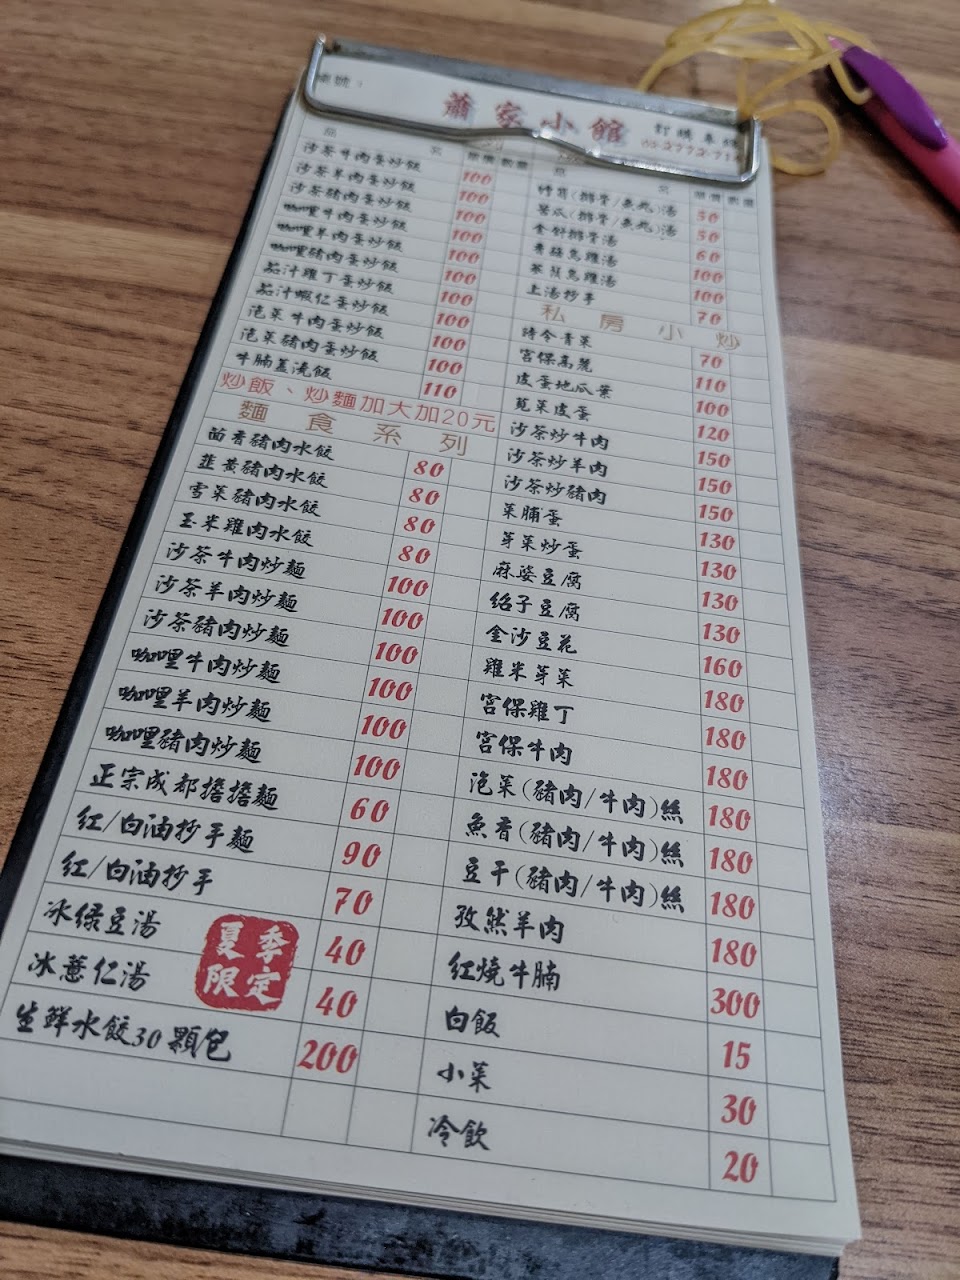 桌號：
蕭家小館
訂購專線
品名 單價 數量
沙茶牛肉蛋炒飯 100
沙茶羊肉蛋炒飯 100
沙茶豬肉蛋炒飯 100
咖哩牛肉蛋炒飯 100
咖哩羊肉蛋炒飯 100
咖哩豬肉蛋炒飯 100
茄汁雞丁蛋炒飯 100
茄汁蝦仁蛋炒飯 100
泡菜牛肉蛋炒飯 100
泡菜豬肉蛋炒飯 100
牛腩蓋澆飯 110
炒飯、炒麵加大加20元
麵食系列
茴香豬肉水餃 80
韮黃豬肉水餃 80
雪菜豬肉水餃 80
玉米雞肉水餃 80
沙茶牛肉炒麵 100
沙茶羊肉炒麵 100
沙茶豬肉炒麵 100
咖哩牛肉炒麵 100
咖哩羊肉炒麵 100
咖哩豬肉炒麵 100
正宗成都擔擔麵 60
紅/白油抄手麵 90
紅/白油抄手 70
冰綠豆湯 40
冰薏仁湯 40
夏季
限定
生鮮水餃30顆包 200
品名 單價 數量
竹筍(排骨/魚丸)湯 50
苦瓜(排骨/魚丸)湯 50
金針排骨湯 60
香菇烏雞湯 100
烏雞湯 100
上湯抄手 70
私房小炒
時令青菜 70
宮保高麗 110
皮蛋地瓜葉 100
莧菜皮蛋 120
沙茶炒牛肉 150
沙茶炒羊肉 150
沙茶炒豬肉 150
菜脯蛋 130
芽菜炒蛋 130
麻婆豆腐 130
紹子豆腐 130
金沙豆花 160
雞米芽菜 180
宮保雞丁 180
宮保牛肉 180
泡菜(豬肉/牛肉)絲 180
魚香(豬肉/牛肉)絲 180
豆干(豬肉/牛肉)絲 180
孜然羊肉 180
紅燒牛腩 300
白飯 15
小菜 30
冷飲 20